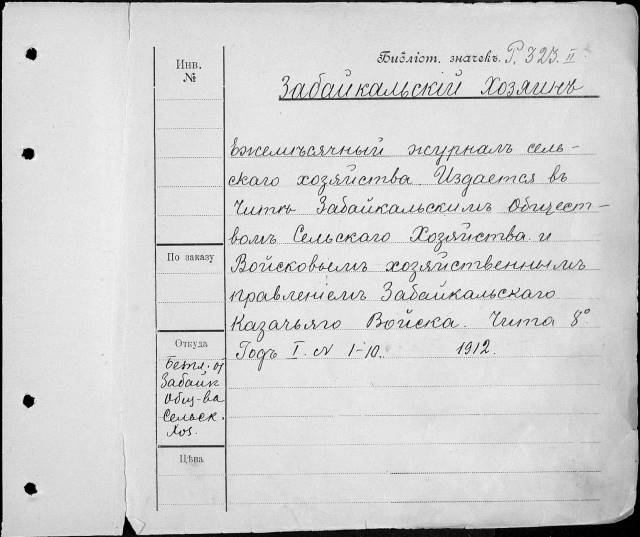 Инв.
№
Библіот. значекъ. Р. 323. II
Забайкальскій Хозяинъ
Ежемѣсячный журналъ сель-
скаго хозяйства. Издается въ
Читѣ Забайкальскимъ Общест-
вомъ Сельскаго Хозяйства и
Войсковымъ хозяйственнымъ
правленіемъ Забайкальскаго
Казачьяго Войска. Чита 8°
Годъ I. № 1-10. 1912.
По заказу
Откуда
Забайк
Общ-ва
Сельск.
Хоз.
Цѣна